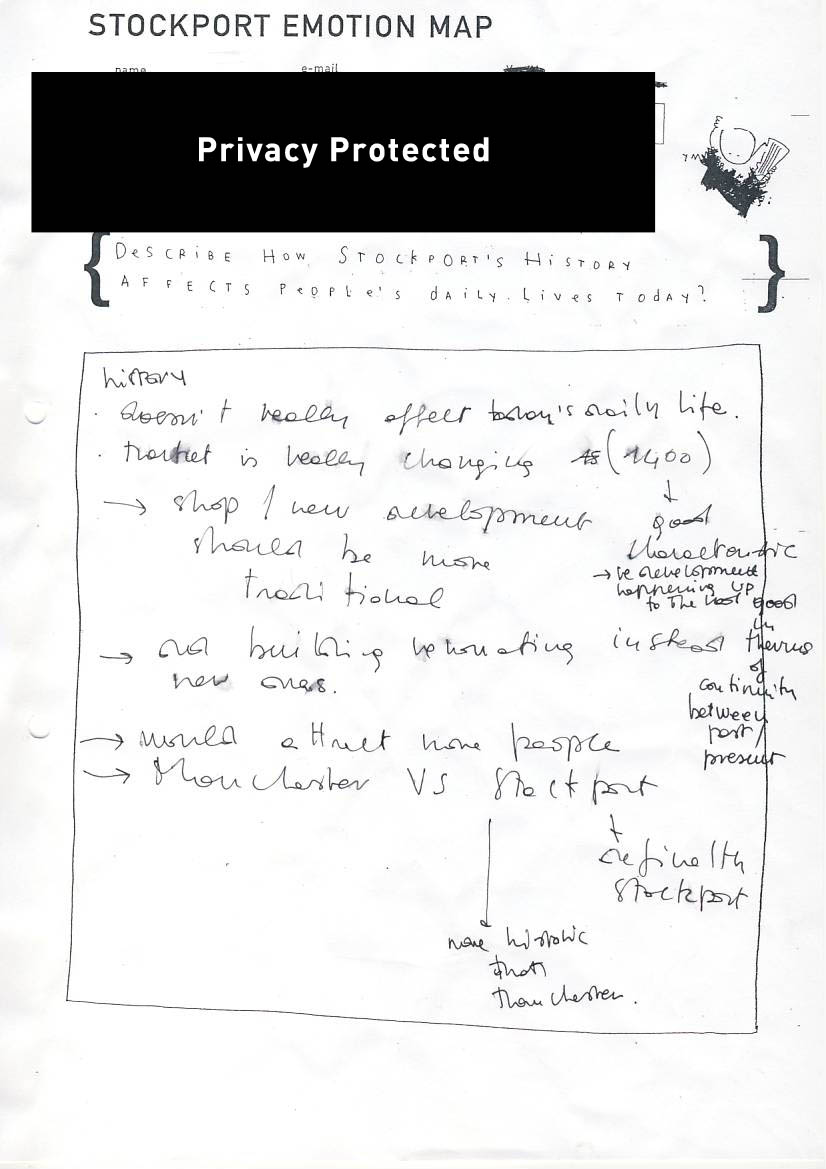 STOCKPORT EMOTION MAP
name e-mail
Privacy Protected
DESCRIBE HOW STOCKPORT'S HISTORY
AFFECTS PEOPLE'S DAILY LIVES TODAY?
history
· doesn't really effect today's daily life.
· market is really changing (1400)
→ shop / new development
should be more
traditional
good
characteristic
→ re development
happening up
to the last good
in
terms
of
continuity
between
past /
present
→ old building renovating instead
new ones.
→ would attract more people
→ Manchester VS Stockport
definelth
Stockport
more historic
than
Manchester.